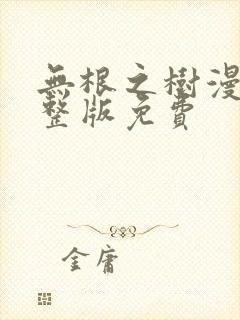 無根之樹漫
整版免費
金庸